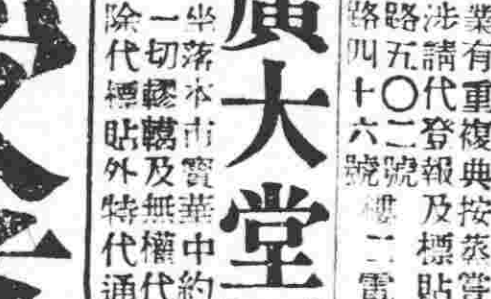 業有重複典按蒸嘗
涉請代登報及標貼
路五〇二號 樓二電
路四十六號
廣大堂
坐落本市寶華中約
一切轇轕及無權代
除代標貼外特代通